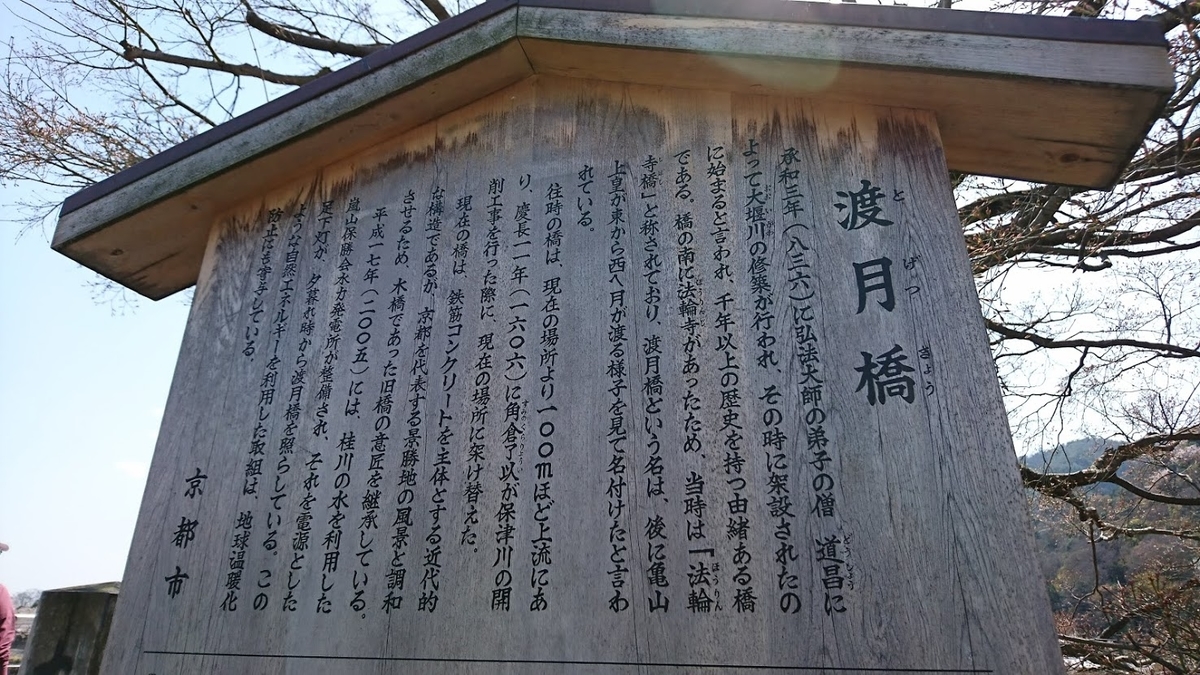 渡月橋
とげつきょう
承和三年（八三六）に弘法大師の弟子の僧　道昌に
よって大堰川の修築が行われ、その時に架設されたの
に始まると言われ、千年以上の歴史を持つ由緒ある橋
である。橋の南に法輪寺があったため、当時は「法輪
寺橋」と称されており、渡月橋という名は、後に亀山
上皇が東から西へ月が渡る様子を見て名付けたと言わ
れている。
往時の橋は、現在の場所より一〇〇mほど上流にあ
り、慶長一一年（一六〇六）に角倉了以が保津川の開
削工事を行った際に、現在の場所に架け替えた。
現在の橋は、鉄筋コンクリートを主体とする近代的
な構造であるが、京都を代表する景勝地の風景と調和
させるため、木橋であった旧橋の意匠を継承している。
平成一七年（二〇〇五）には、桂川の水を利用した
嵐山保勝会水力発電所が整備され、それを電源とした
足下灯が、夕暮れ時から渡月橋を照らしている。この
ような自然エネルギーを利用した取組は、地球温暖化
防止にも寄与している。
京都市